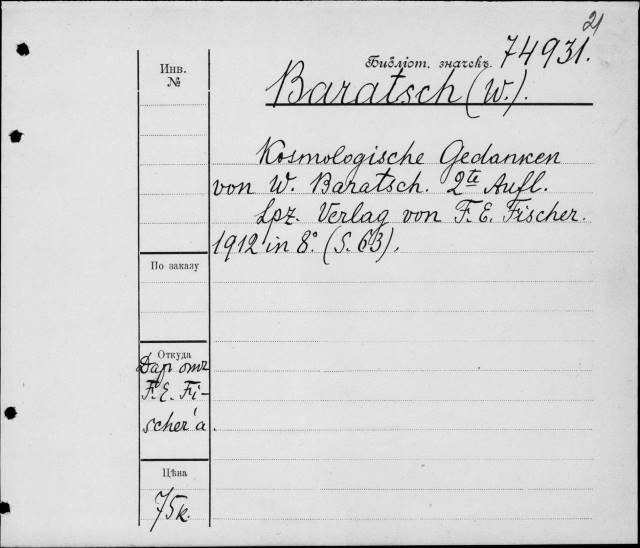 21
Библіот. значекъ 74931.
Инв.
№
Baratsch (W.).
Kosmologische Gedanken
von W. Baratsch. 2te Aufl.
Lpz. Verlag von F. E. Fischer.
1912 in 8° (S. 63).
По заказу
Откуда
Дар отъ
F. E. Fi-
scher'a.
Цѣна
75 к.